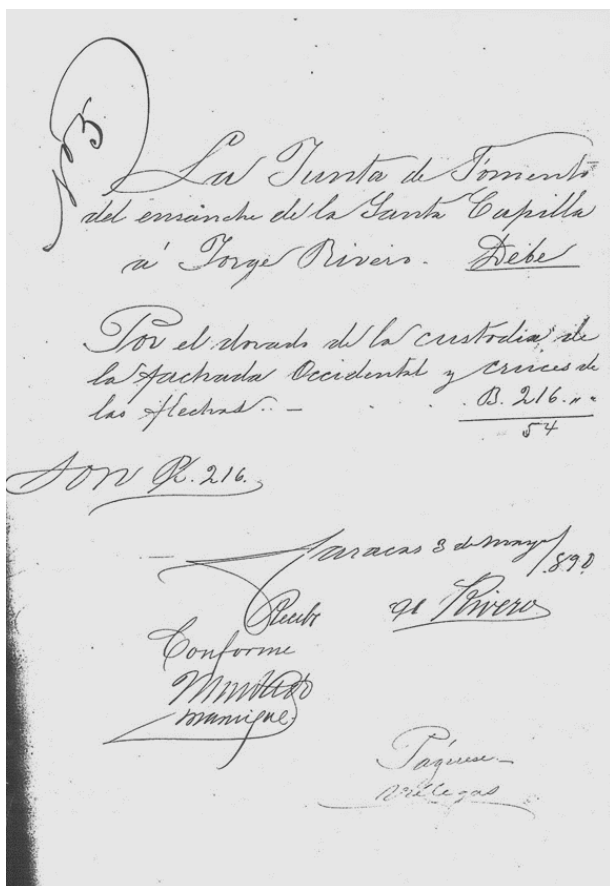 La Junta de Fomento
del ensanche de la Santa Capilla
a' Jorge Rivero. Debe
Por el dorado de la custodia de
la fachada Occidental y cruces de
las flechas. - B. 216. " "
54
Son B. 216.
Caracas 3 de Mayo /890
Recibí Rivero
Conforme
Manrique
Páguese